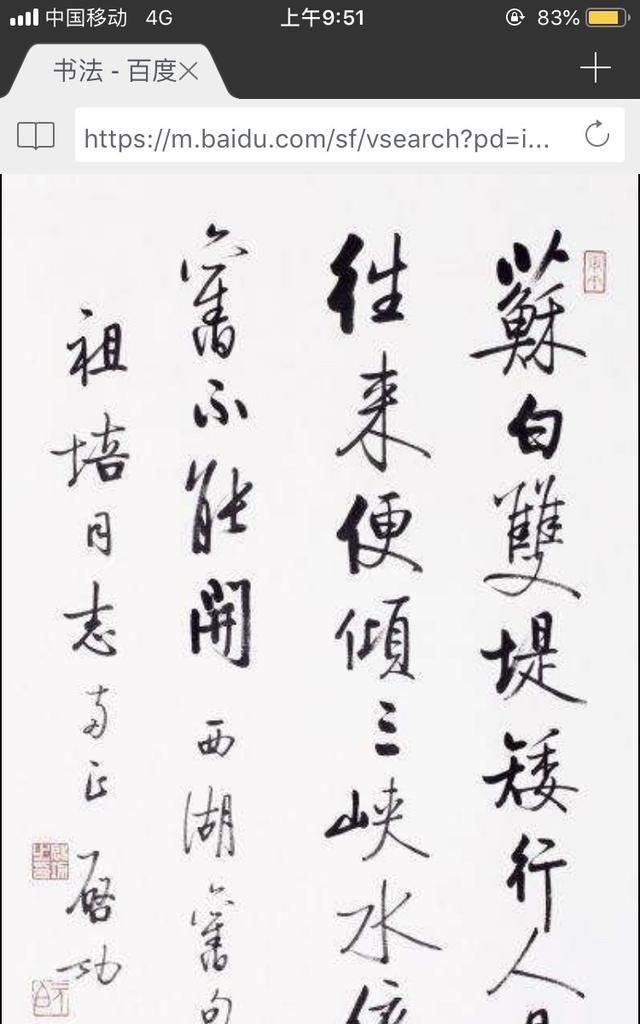 中国移动 4G 上午9:51 83%
书法 - 百度
https://m.baidu.com/sf/vsearch?pd=i...
蘇白雙堤矮行人
往来便傾三峽水
舊不能開 西湖舊句
祖培同志 両正 啓功